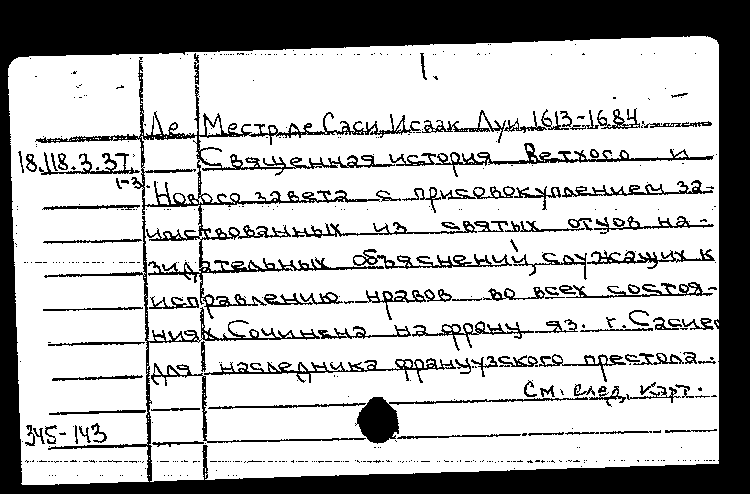 1.
Ле Местр де Саси, Исаак Луи, 1613-1684.
18.118.3.37. Священная история Ветхого и
1-3. Нового завета с присовокуплением за-
имствованных из святых отцов на-
зидательных объяснений, служащих к
исправлению нравов во всех состоя-
ниях. Сочинена на франц яз. г. Сасием
для наследника французского престола.
См. след. карт.
345-143